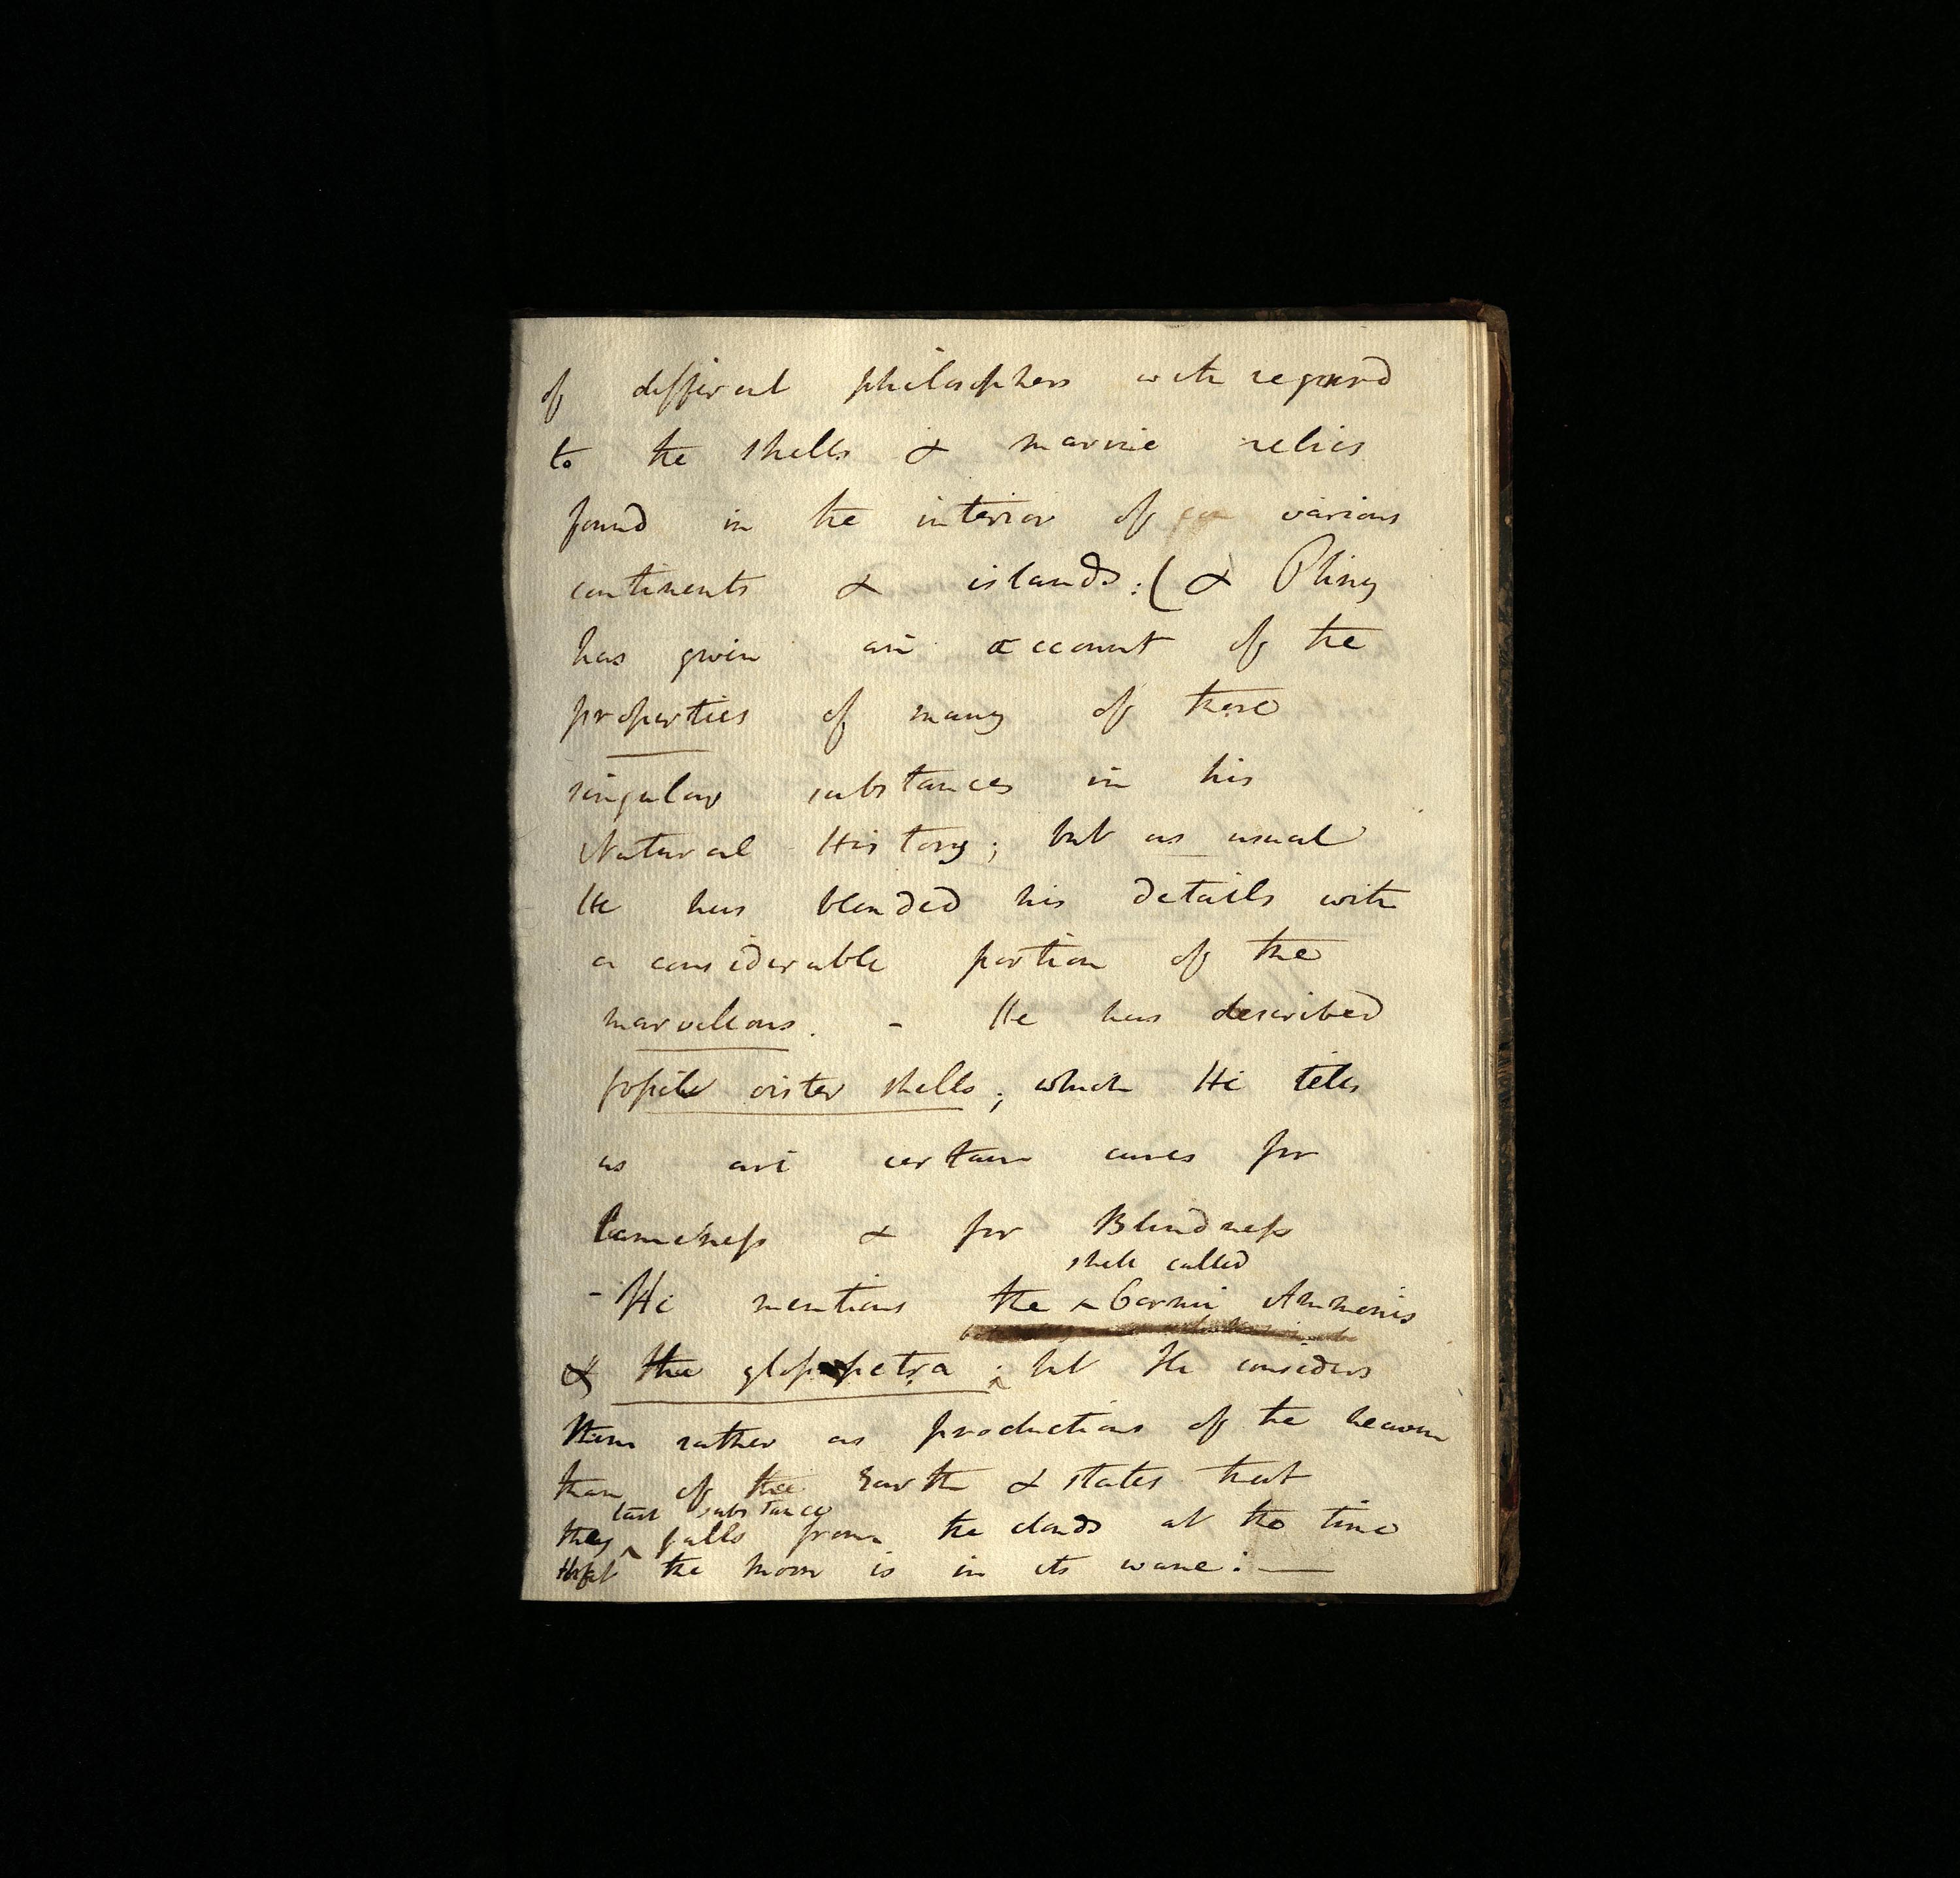 of different philosophers with regard
to the shells & marine relics
found in the interior of various
continents & islands: (& Pliny
has given an account of the
properties of many of these
singular substances in his
Natural History; but as usual
He has blended his details with
a considerable portion of the
marvellous. - He has described
fossile oister shells; which He tells
us are certain cures for
lameness & for Blindness
shell called
- He mentions the ^ Cornu Ammonis
& the glossopetra; but He considers
them rather as productions of the heaven
than of the Earth & states that
last substance
they ^ falls from the clouds at the time
that the moon is in its wane: —